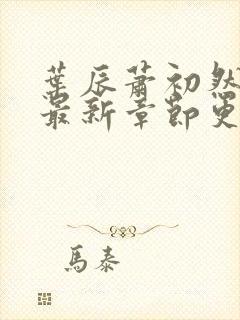 葉辰蕭初然
最新章節更
馬泰